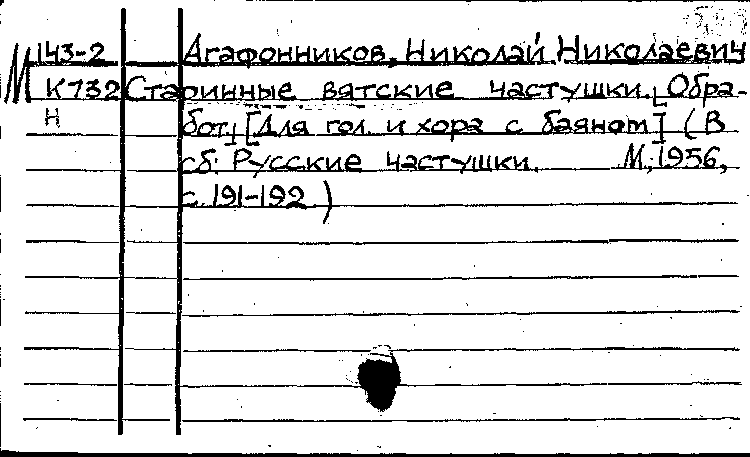 143-2 Агафонников, Николай Николаевич
М К732 Старинные вятские частушки. [Обра-
Н бот.] [Для гол. и хора с баяном] (В
сб: Русские частушки. М, 1956,
с. 191-192)